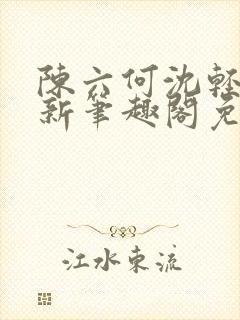 陳六何沈輕
新筆趣閣免
江水東流